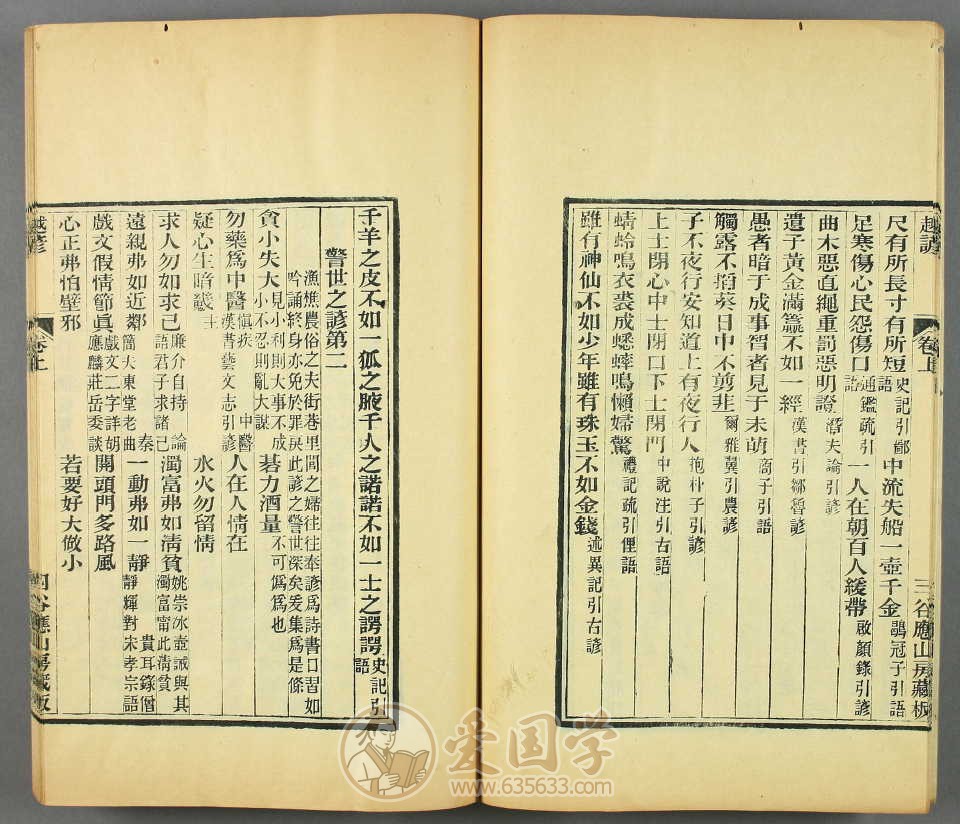 越諺
卷上
三谷應山房藏板
尺有所長寸有所短史記引鄙語 中流失船一壺千金鶡冠子引語
足寒傷心民怨傷口通鑑疏引語 一人在朝百人緩帶啟顏錄引諺
曲木惡直繩重罰惡明證潛夫論引諺
遺子黃金滿籯不如一經漢書引鄒魯諺
愚者暗于成事智者見于未萌商子引語
觸露不掐葵日中不剪韭爾雅翼引農諺
子不夜行安知道上有夜行人抱朴子引諺
上士閉心中士閉口下士閉門中說注引古語
蜻蛉鳴衣裘成蟋蟀鳴懶婦驚禮記疏引俚語
雖有神仙不如少年雖有珠玉不如金錢述異記引古諺
千羊之皮不如一狐之腋千人之諾諾不如一士之諤諤史記引語
警世之諺第二
漁樵農俗之夫街巷里閭之婦往往奉諺為詩書口習如
吟誦終身亦免於罪戾此諺之警世深矣爰集為是條
貪小失大見小利則大事不成小不忍則亂大謀 碁力酒量不可偽為也
勿藥為中醫漢書藝文志引諺 人在人情在
疑心生暗鬼 水火勿留情
求人勿如求己廉介自持論語君子求諸己 濁富弗如清貧姚崇冰壺誡與其濁富甯此清貧
遠親弗如近鄰秦簡夫東堂老曲 一動弗如一靜貴耳錄僧靜輝對宋孝宗語
戲文假情節真戲文二字詳胡應麟莊岳委談 開頭門多路風
心正弗怕壁邪 若要好大做小
越諺
卷上
四谷應山房藏板
爱国学
www.635633.com